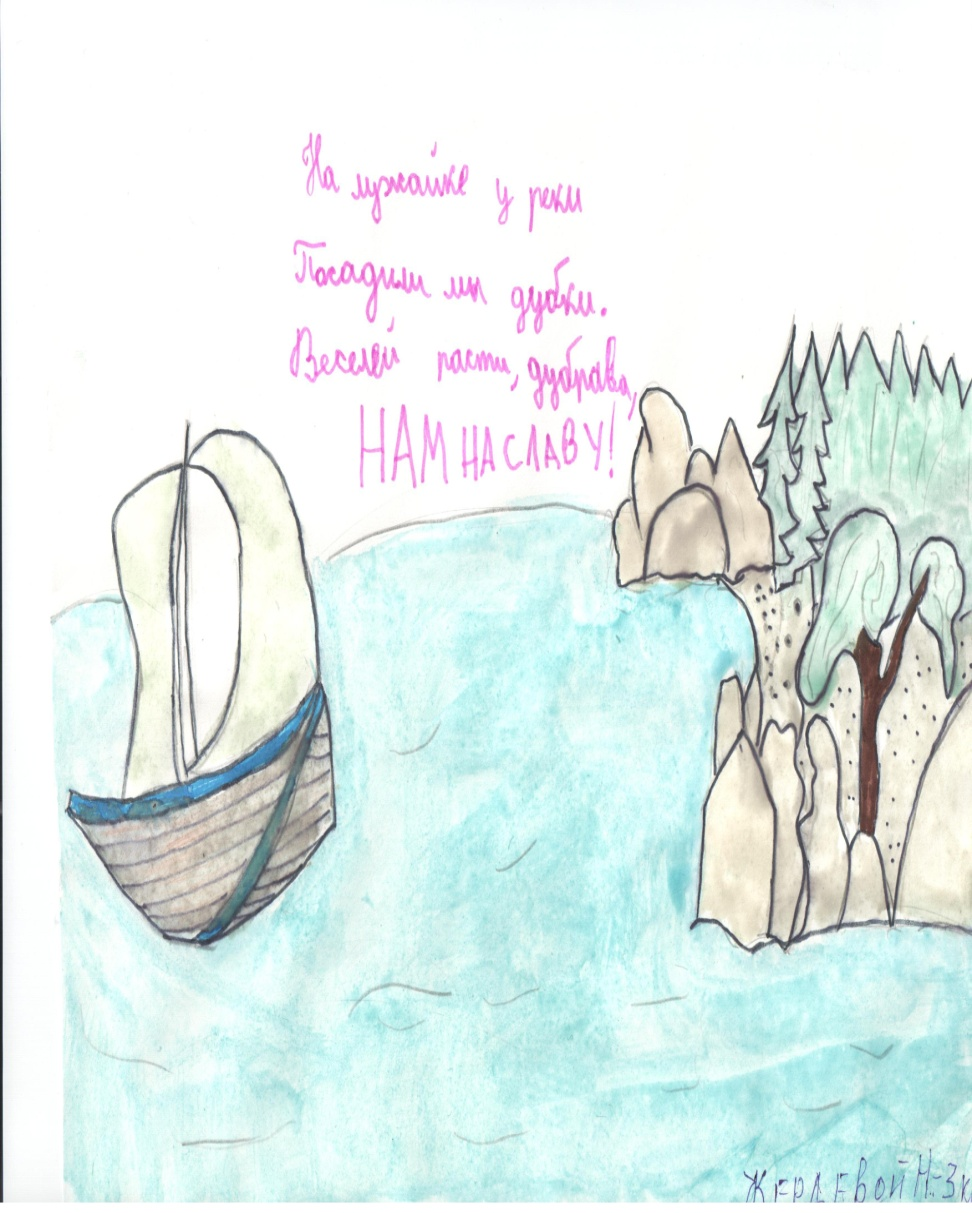 На лужайке у реки
Посадили мы дубки.
Веселей расти, дубрава,
НАМ НА СЛАВУ!
ЖЕРДЕВОЙ Н-3к